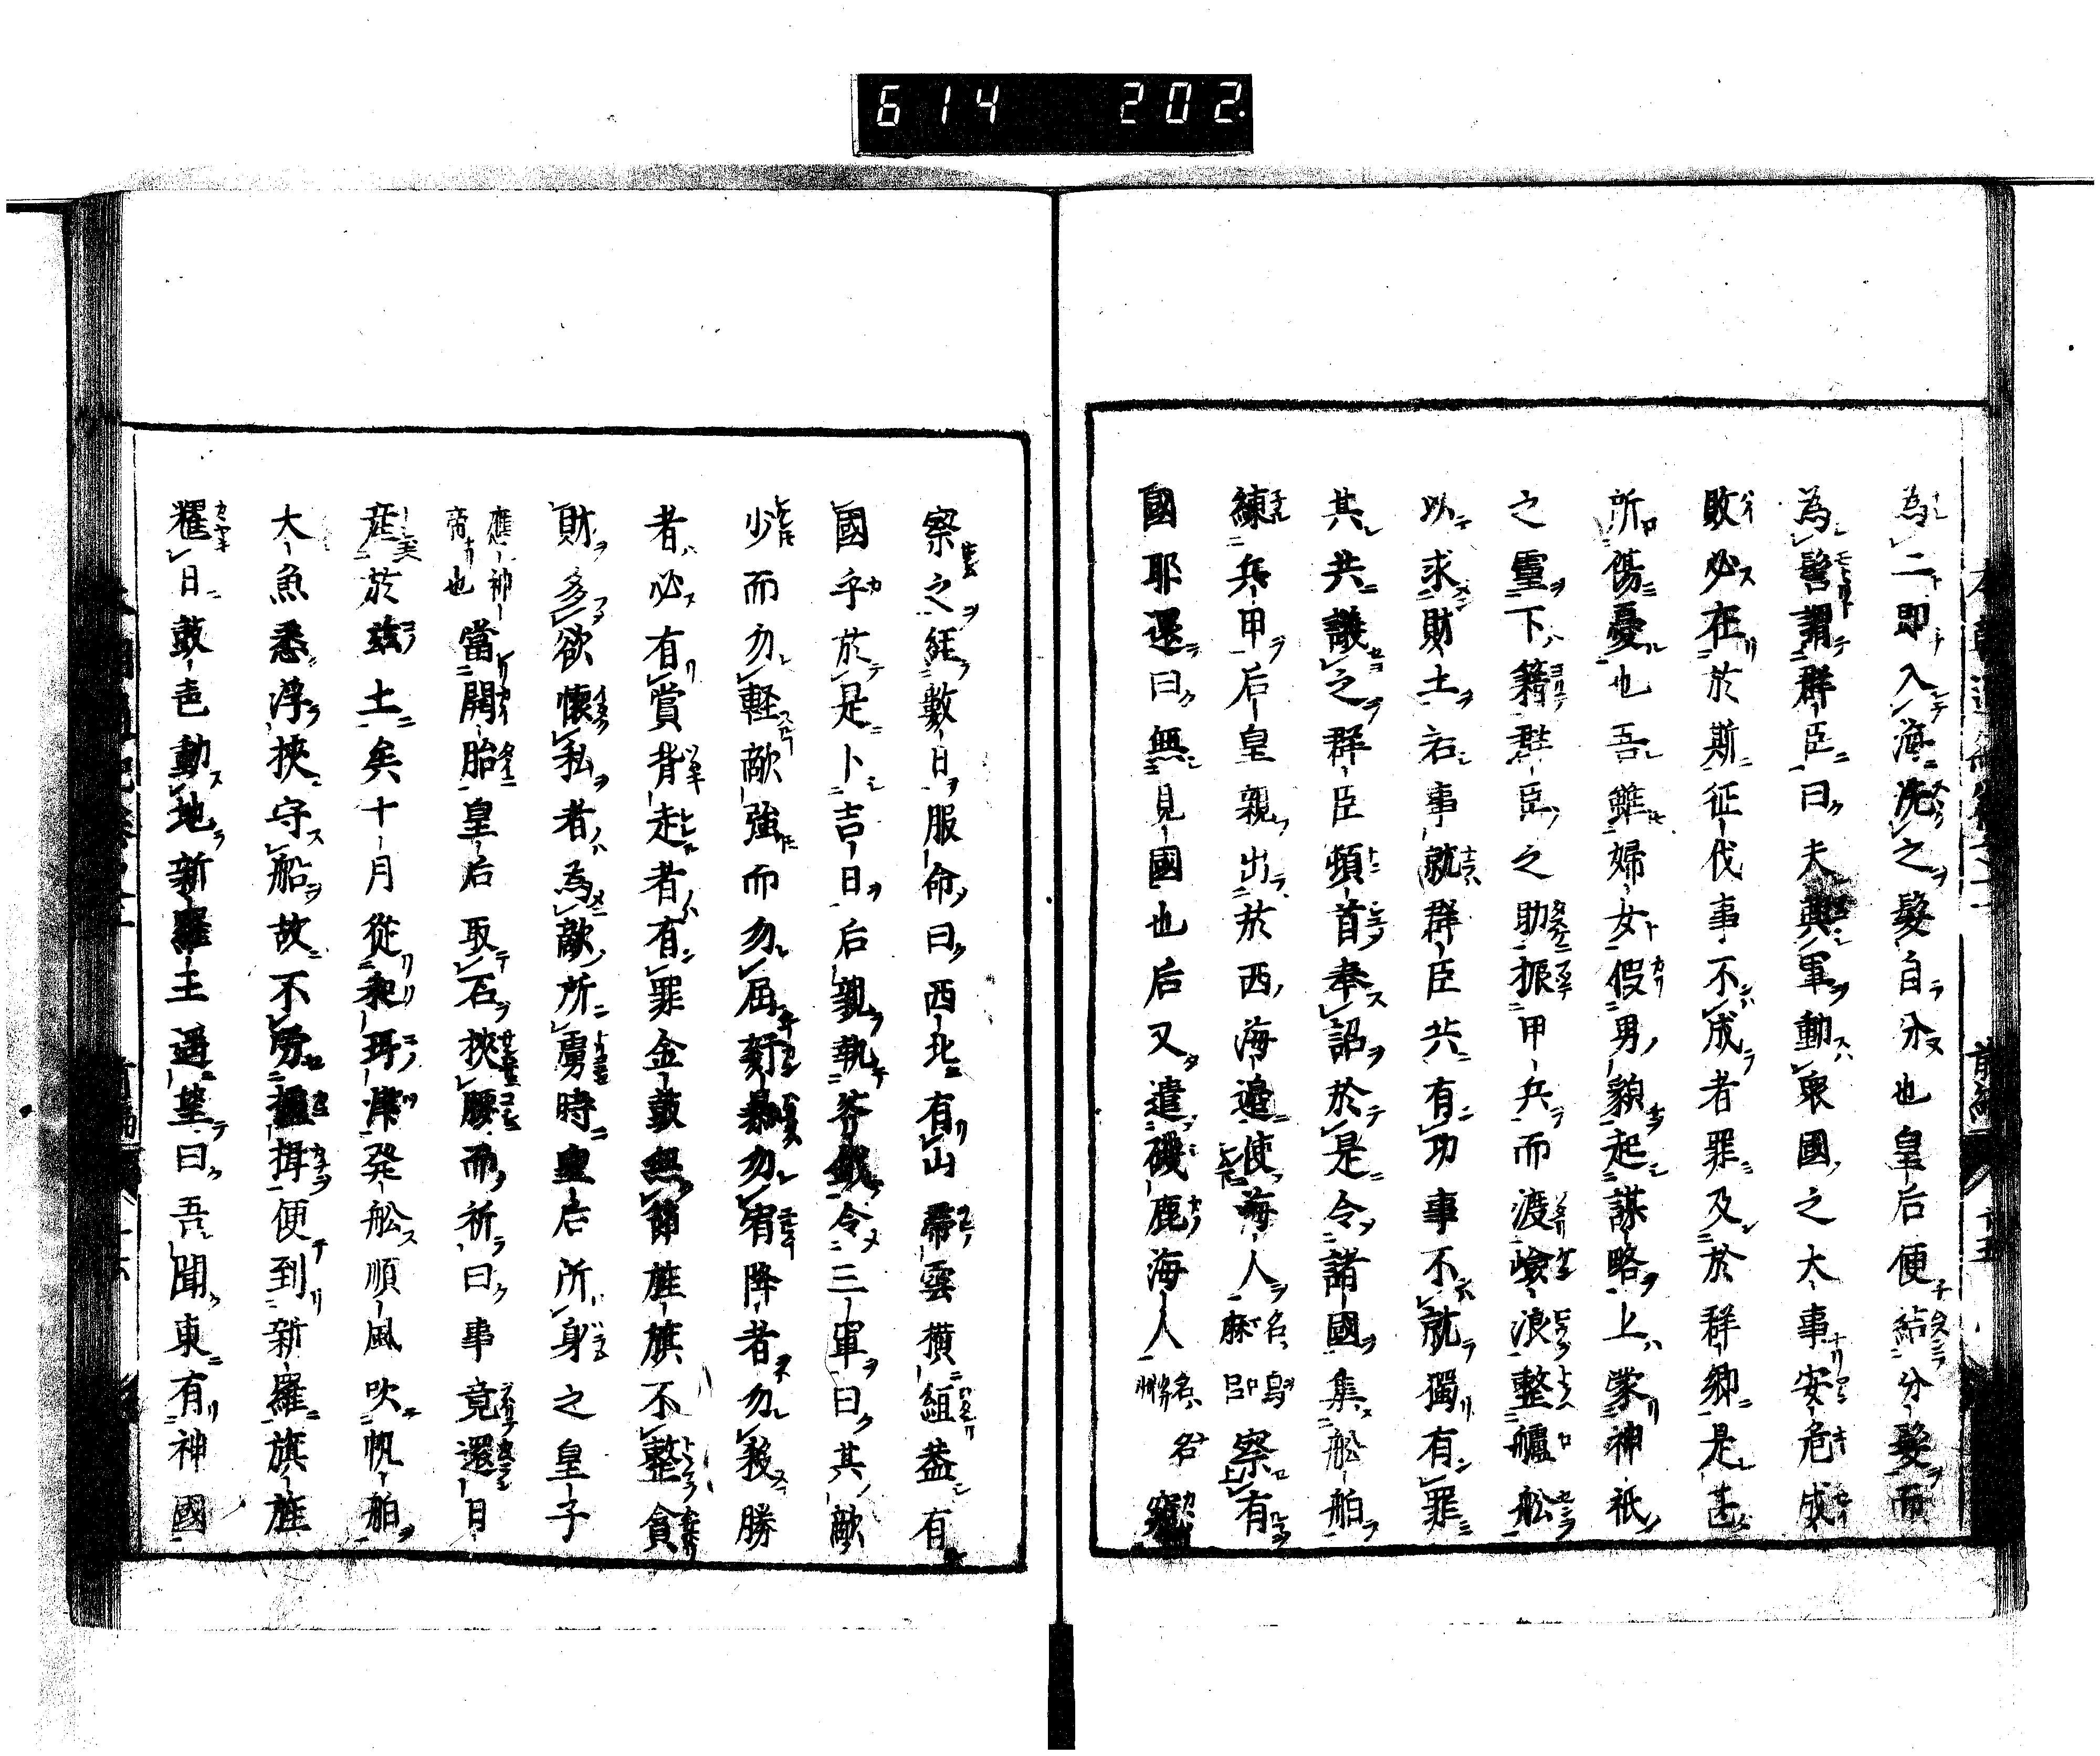 614 202
為二即入海洗之髮自分也皇后便結分髮而
為髻謂群臣曰夫興軍動衆國之大事安危成
敗必在於斯征伐事不成者罪及於群卿是甚
所傷憂也吾雖婦女假男貌起謀略上蒙神祇
之靈下籍群臣之助振甲兵而渡嶮浪整艫舩
以求財土若事就群臣共有功事不就獨有罪
其共議之群臣頓首奉詔於是令諸國集舩舶
練兵甲后皇親出於西海邉使海人名烏麻呂察有
國耶還曰無見國也后又遣磯鹿海人名
察之経數日服命曰西北有山帶雲横絙盖有
國乎於是卜吉日后親執斧鉞令三軍曰其敵
少而勿軽敵強而勿屈姧暴勿宥降者勿殺勝
者必有賞背走者有罪金鼓無節旌旗不整貪
財多欲懐私者為敵所虜時皇后所身之皇子
應神帝也當開胎皇后取石挾腰而祈曰事竟還日
産於玆土矣十月従和珥津発舩順風吹帆舶
大魚悉浮挾守船故不労檝便到新羅旗旌
耀日鼓音動地新羅王遥望曰吾聞東有神國